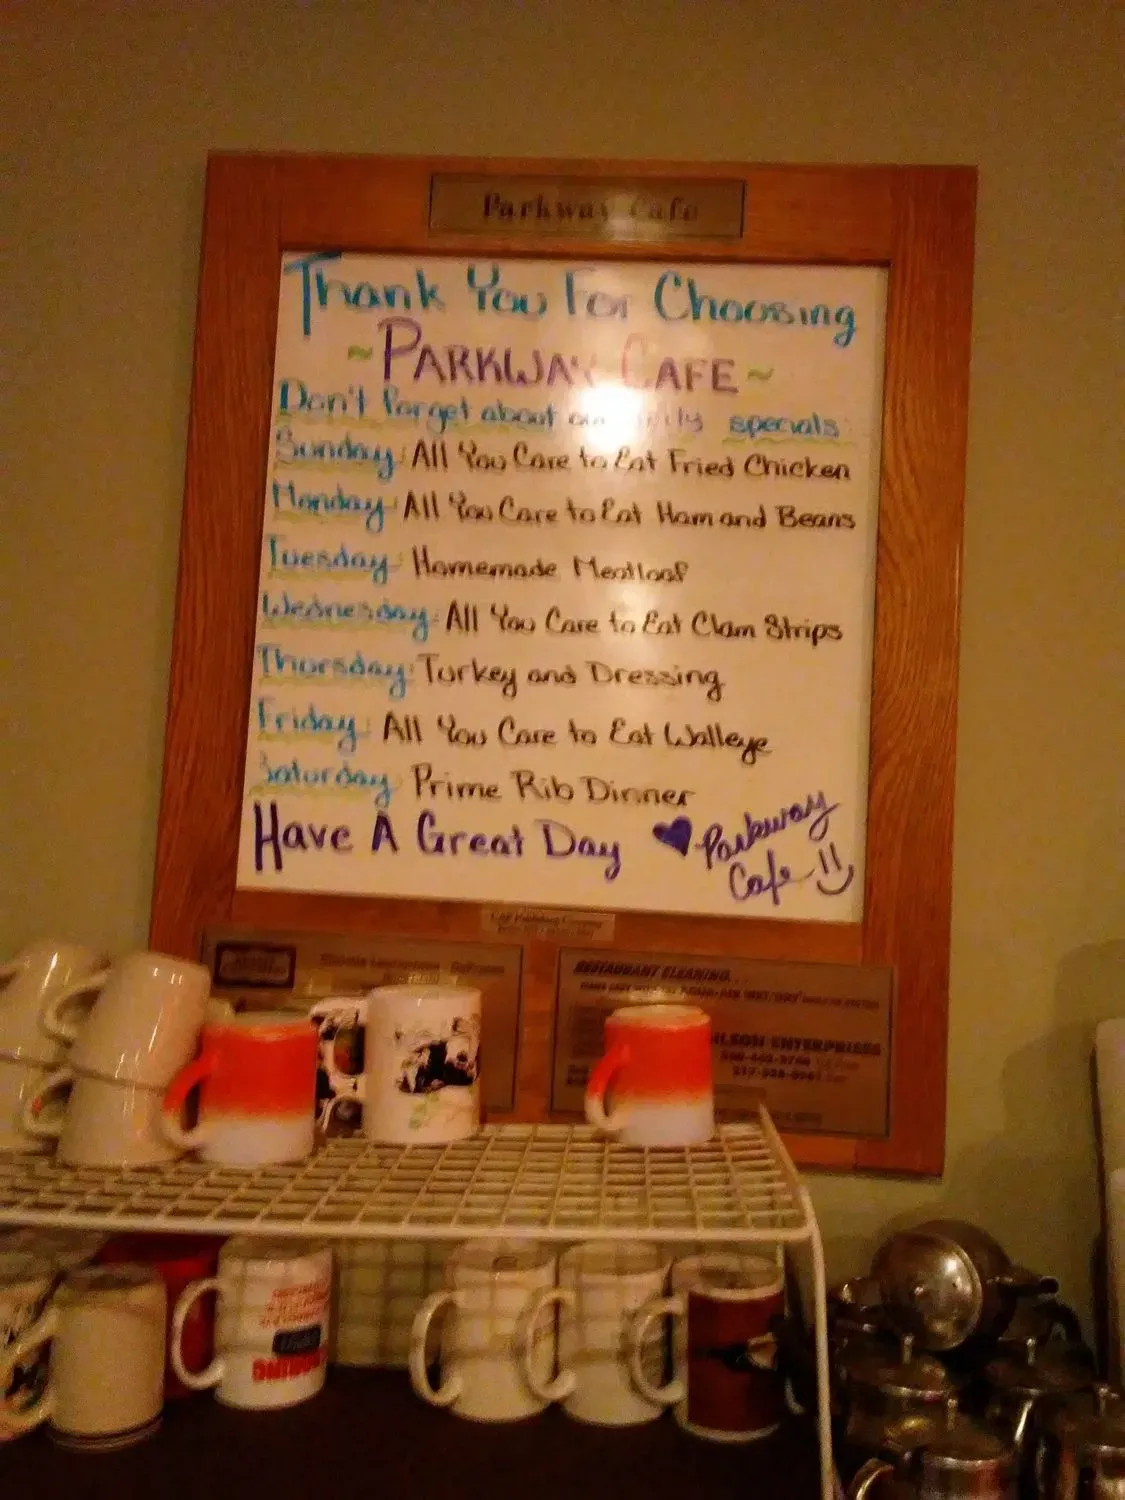 Parkway Cafe
Thank You For Choosing
~PARKWAY CAFE~
Don't forget about our specials:
Sunday: All You Care to Eat Fried Chicken
Monday: All You Care to Eat Ham and Beans
Tuesday: Homemade Meatloaf
Wednesday: All You Care to Eat Clam Strips
Thursday: Turkey and Dressing
Friday: All You Care to Eat Walleye
Saturday: Prime Rib Dinner
Have A Great Day ♥ Parkway
Cafe
RESTAURANT CLEANING...
ENTERPRISES